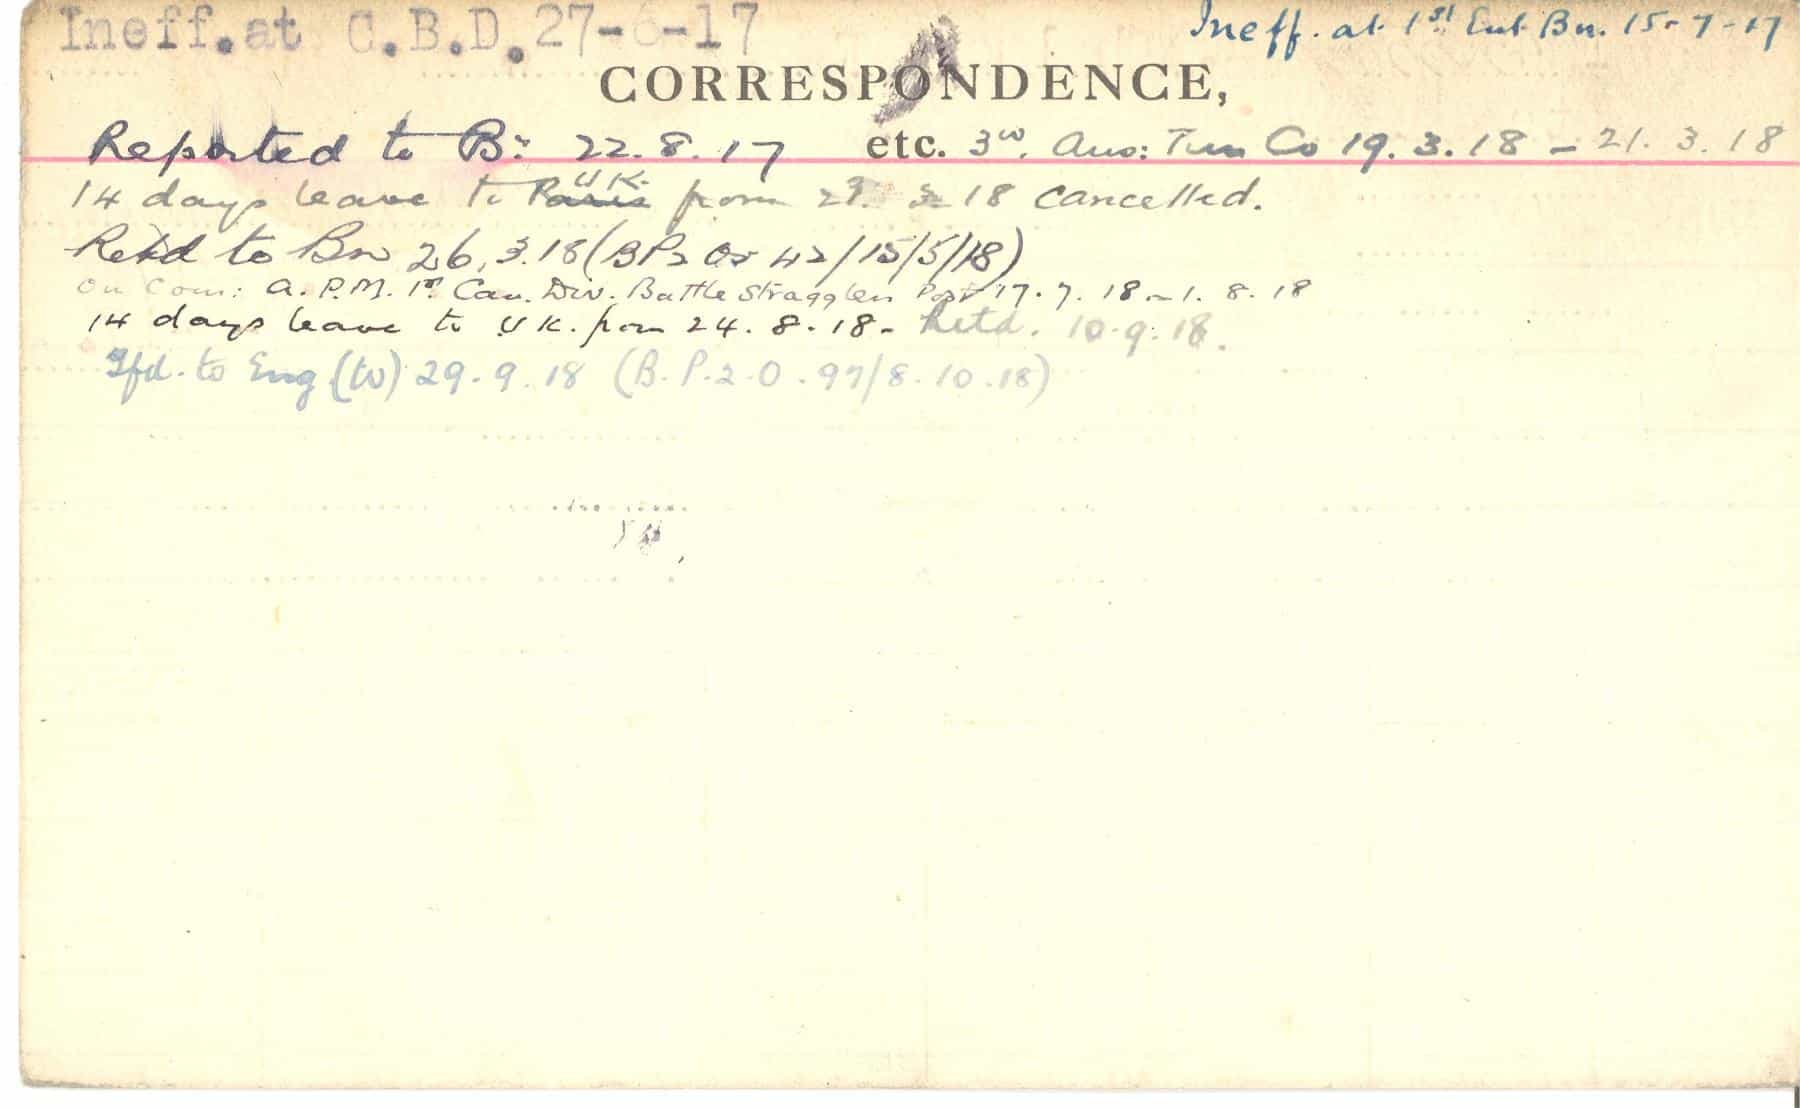 Ineff. at C.B.D. 27-6-17 Ineff. at 1st Ent Bn. 15-7-17
CORRESPONDENCE,
Reported to Bn 22.8.17 etc. Aus: Tun Co 19.3.18 - 21.3.18
14 days leave to Paris U.K. from 3 18 cancelled.
Retd to Bn 26.3.18 (BP2 Or 42/15/5/18)
On Com: A.P.M. 1st Can. Div. Battle Stragglers Post 17.7.18 - 1.8.18
14 days leave to U.K. from 24.8.18 - Retd. 10.9.18.
Tfd. to Eng (W) 29.9.18 (B.P.2.O.97/8.10.18)